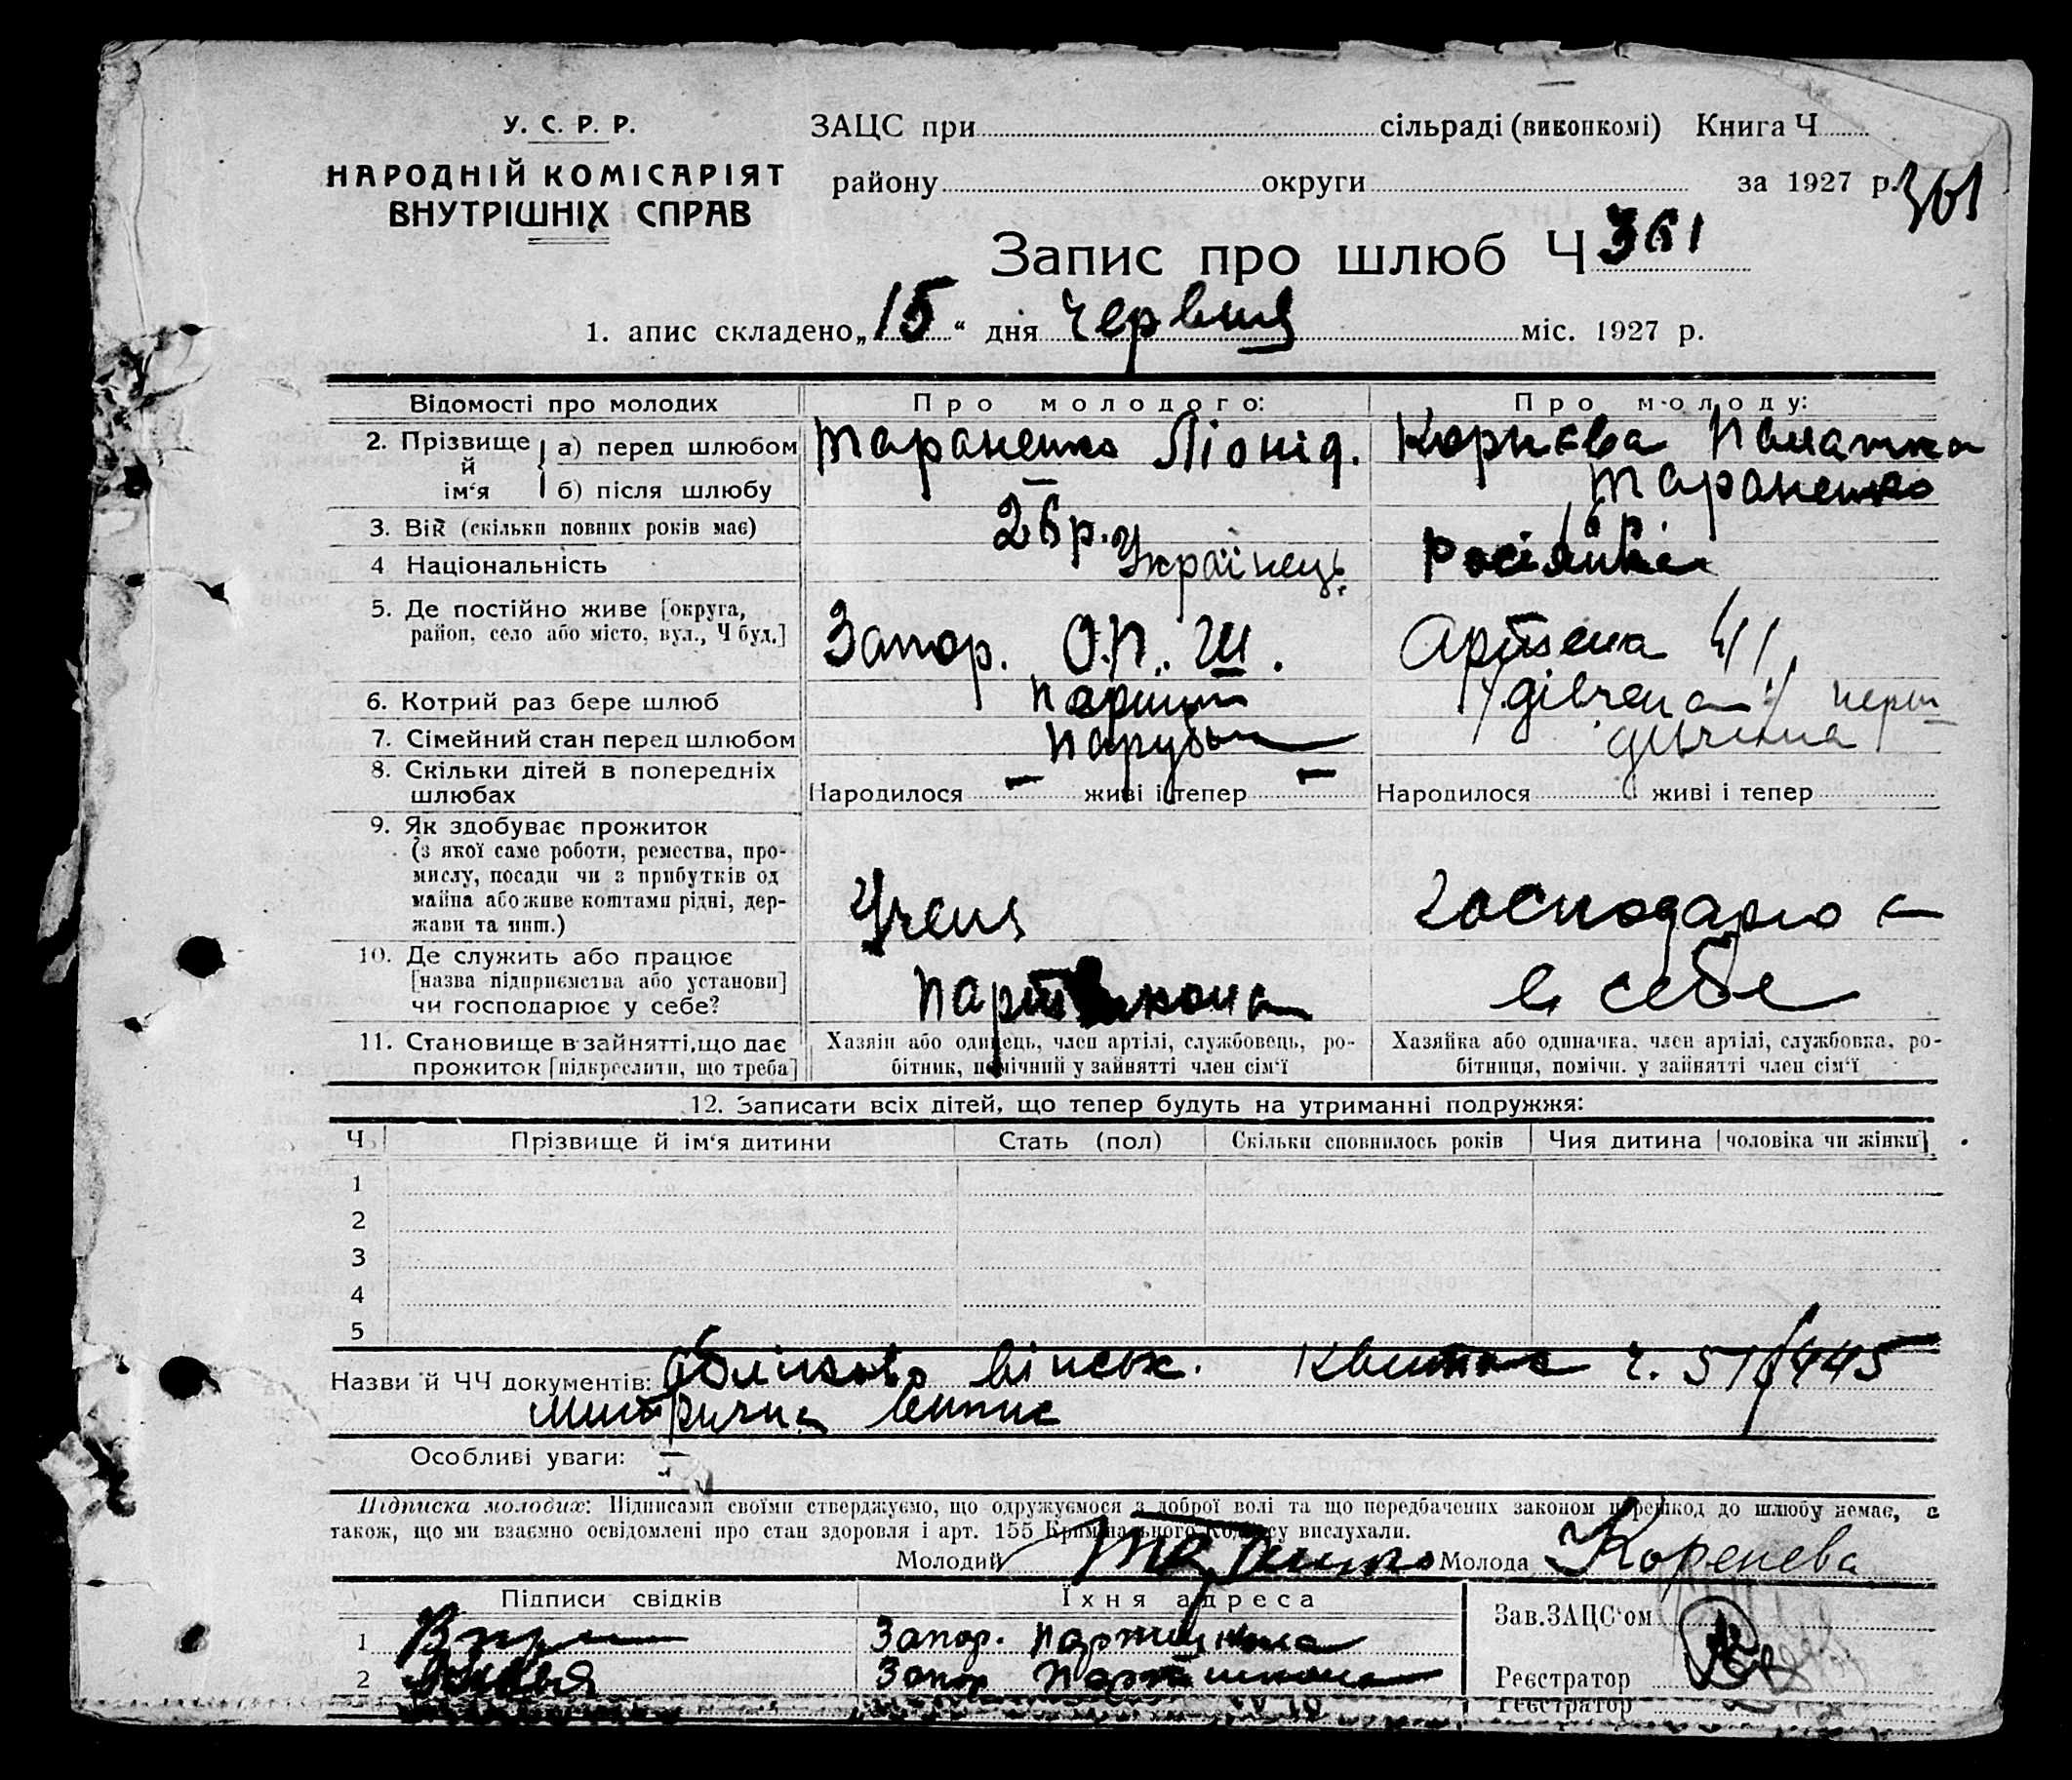 У. С. Р. Р.
НАРОДНІЙ КОМІСАРІЯТ
ВНУТРІШНІХ СПРАВ
ЗАЦС при сільраді (виконкомі) Книга Ч
району округи за 1927 р. 361
Запис про шлюб Ч 361
1. апис складено „15“ дня червня міс. 1927 р.
Відомості про молодих Про молодого: Про молоду:
2. Прізвище й ім‘я а) перед шлюбом Тараненко Ліонід. Корнєва
б) після шлюбу — Тараненко
3. Вік (скільки повних років має) 26 р. 16 р.
4 Національність Українець Росіянка
5. Де постійно живе [округа, район, село або місто, вул., Ч буд.] Запор. О.П. Ш. Артема 41
6. Котрий раз бере шлюб перший дівчена перш
7. Сімейний стан перед шлюбом Парубок дівчина
8. Скільки дітей в попередніх шлюбах Народилося — живі і тепер — Народилося живі і тепер
9. Як здобуває прожиток
(з якої саме роботи, ремества, про-
мислу, посади чи з прибутків од
майна або живе коштами рідні, дер-
жави та инш.) Учень господарює
10. Де служить або працює
[назва підприємства або установи]
чи господарює у себе? Партшкола в себе
11. Становище в зайнятті, що дає Хазяїн або одинець, член артілі, службовець, ро- Хазяйка або одиначка, член артілі, службовка, ро-
прожиток [підкреслити, що треба] бітник, помічний у зайнятті член сім‘ї бітниця, помічн. у зайнятті член сім‘ї
12. Записати всіх дітей, що тепер будуть на утриманні подружжя:
Ч Прізвище й ім‘я дитини Стать (пол) Скільки сповнилось років Чия дитина [чоловіка чи жінки]
1
2
3
4
5
Назви й ЧЧ документів: Обліково військ. Квиток ч. 516/445
метрична випис
Особливі уваги:
Підписка молодих: Підписами своїми стверджуємо, що одружуємося з доброї волі та що передбачених законом перешкод до шлюбу немає, а
також, що ми взаємно освідомлені про стан здоровля і арт. 155 Кримінального Кодексу вислухали.
Молодий Молода Коренева
Підписи свідків Їхня адреса Зав. ЗАЦС‘ом
1 Запор. Партшкола
2 Запор Партшкола Реєстратор
Реєстратор